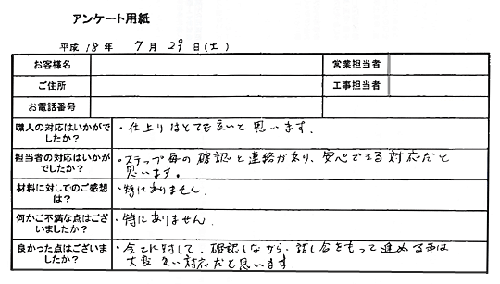 アンケート用紙
平成 18 年 7 月 29 日(土)
お客様名 営業担当者
ご住所 工事担当者
お電話番号
職人の対応はいかがで
したか？
・仕上りはとても良いと思います。
担当者の対応はいかが
でしたか？
・ステップ毎の確認と連絡があり、安心できる対応だと
思います。
材料に対してのご感想
は？
・特にありません。
何かご不満な点はござ
いましたか？
・特にありません。
良かった点はございま
したか？
・確認しながら、話し合をもって進める
大変良い対応だと思います